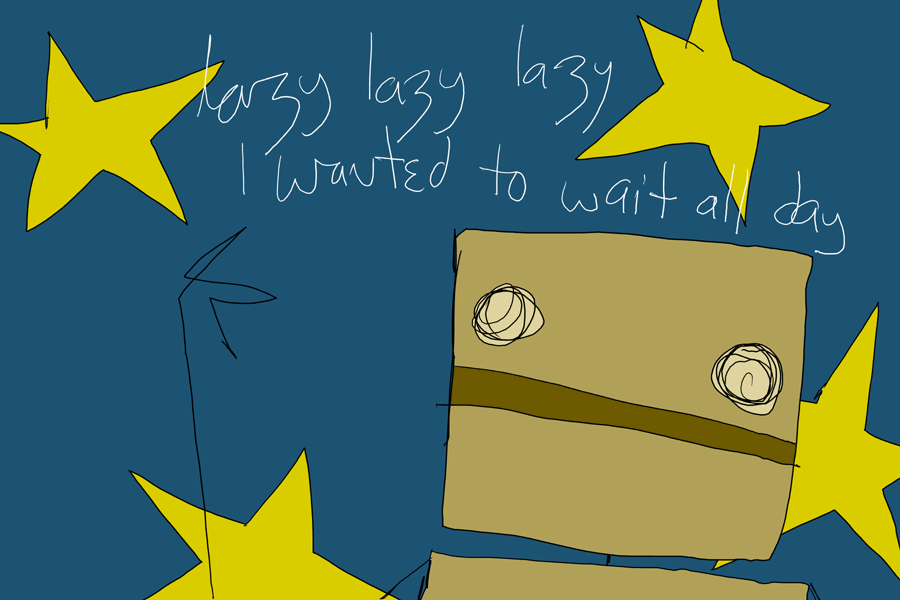 lazy lazy lazy
I wanted to wait all day